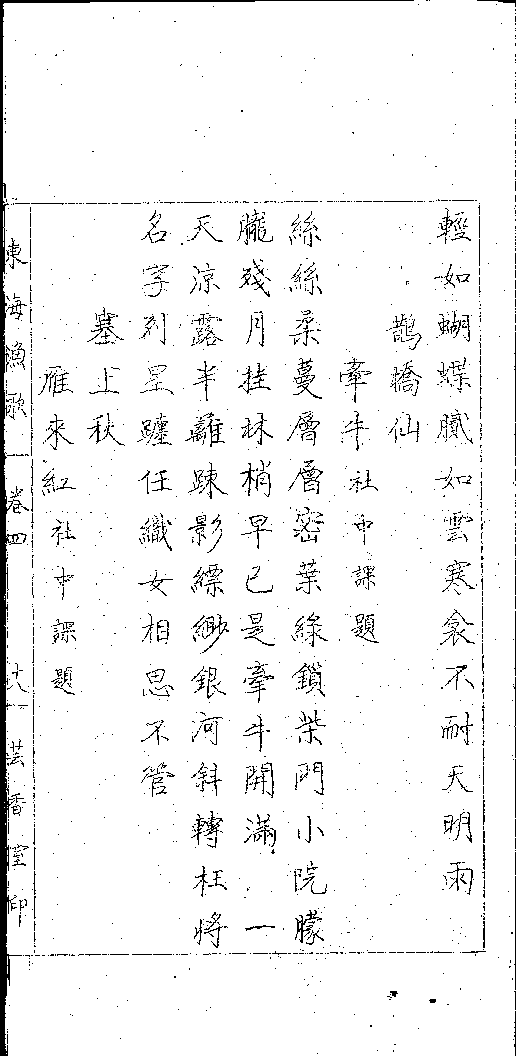 輕如蝴蝶膩如雲寒衾不耐天明雨
鵲橋仙
牽牛社中課題
絲絲柔蔓層層密葉綠鎖柴門小院朦
朧殘月挂林梢早已是牽牛開滿 一
天涼露半離踈影縹緲銀河斜轉枉將
名字列星躔任織女相思不管
塞上秋
雁來紅社中課題
東海漁歌 卷四 十六 芸香堂印